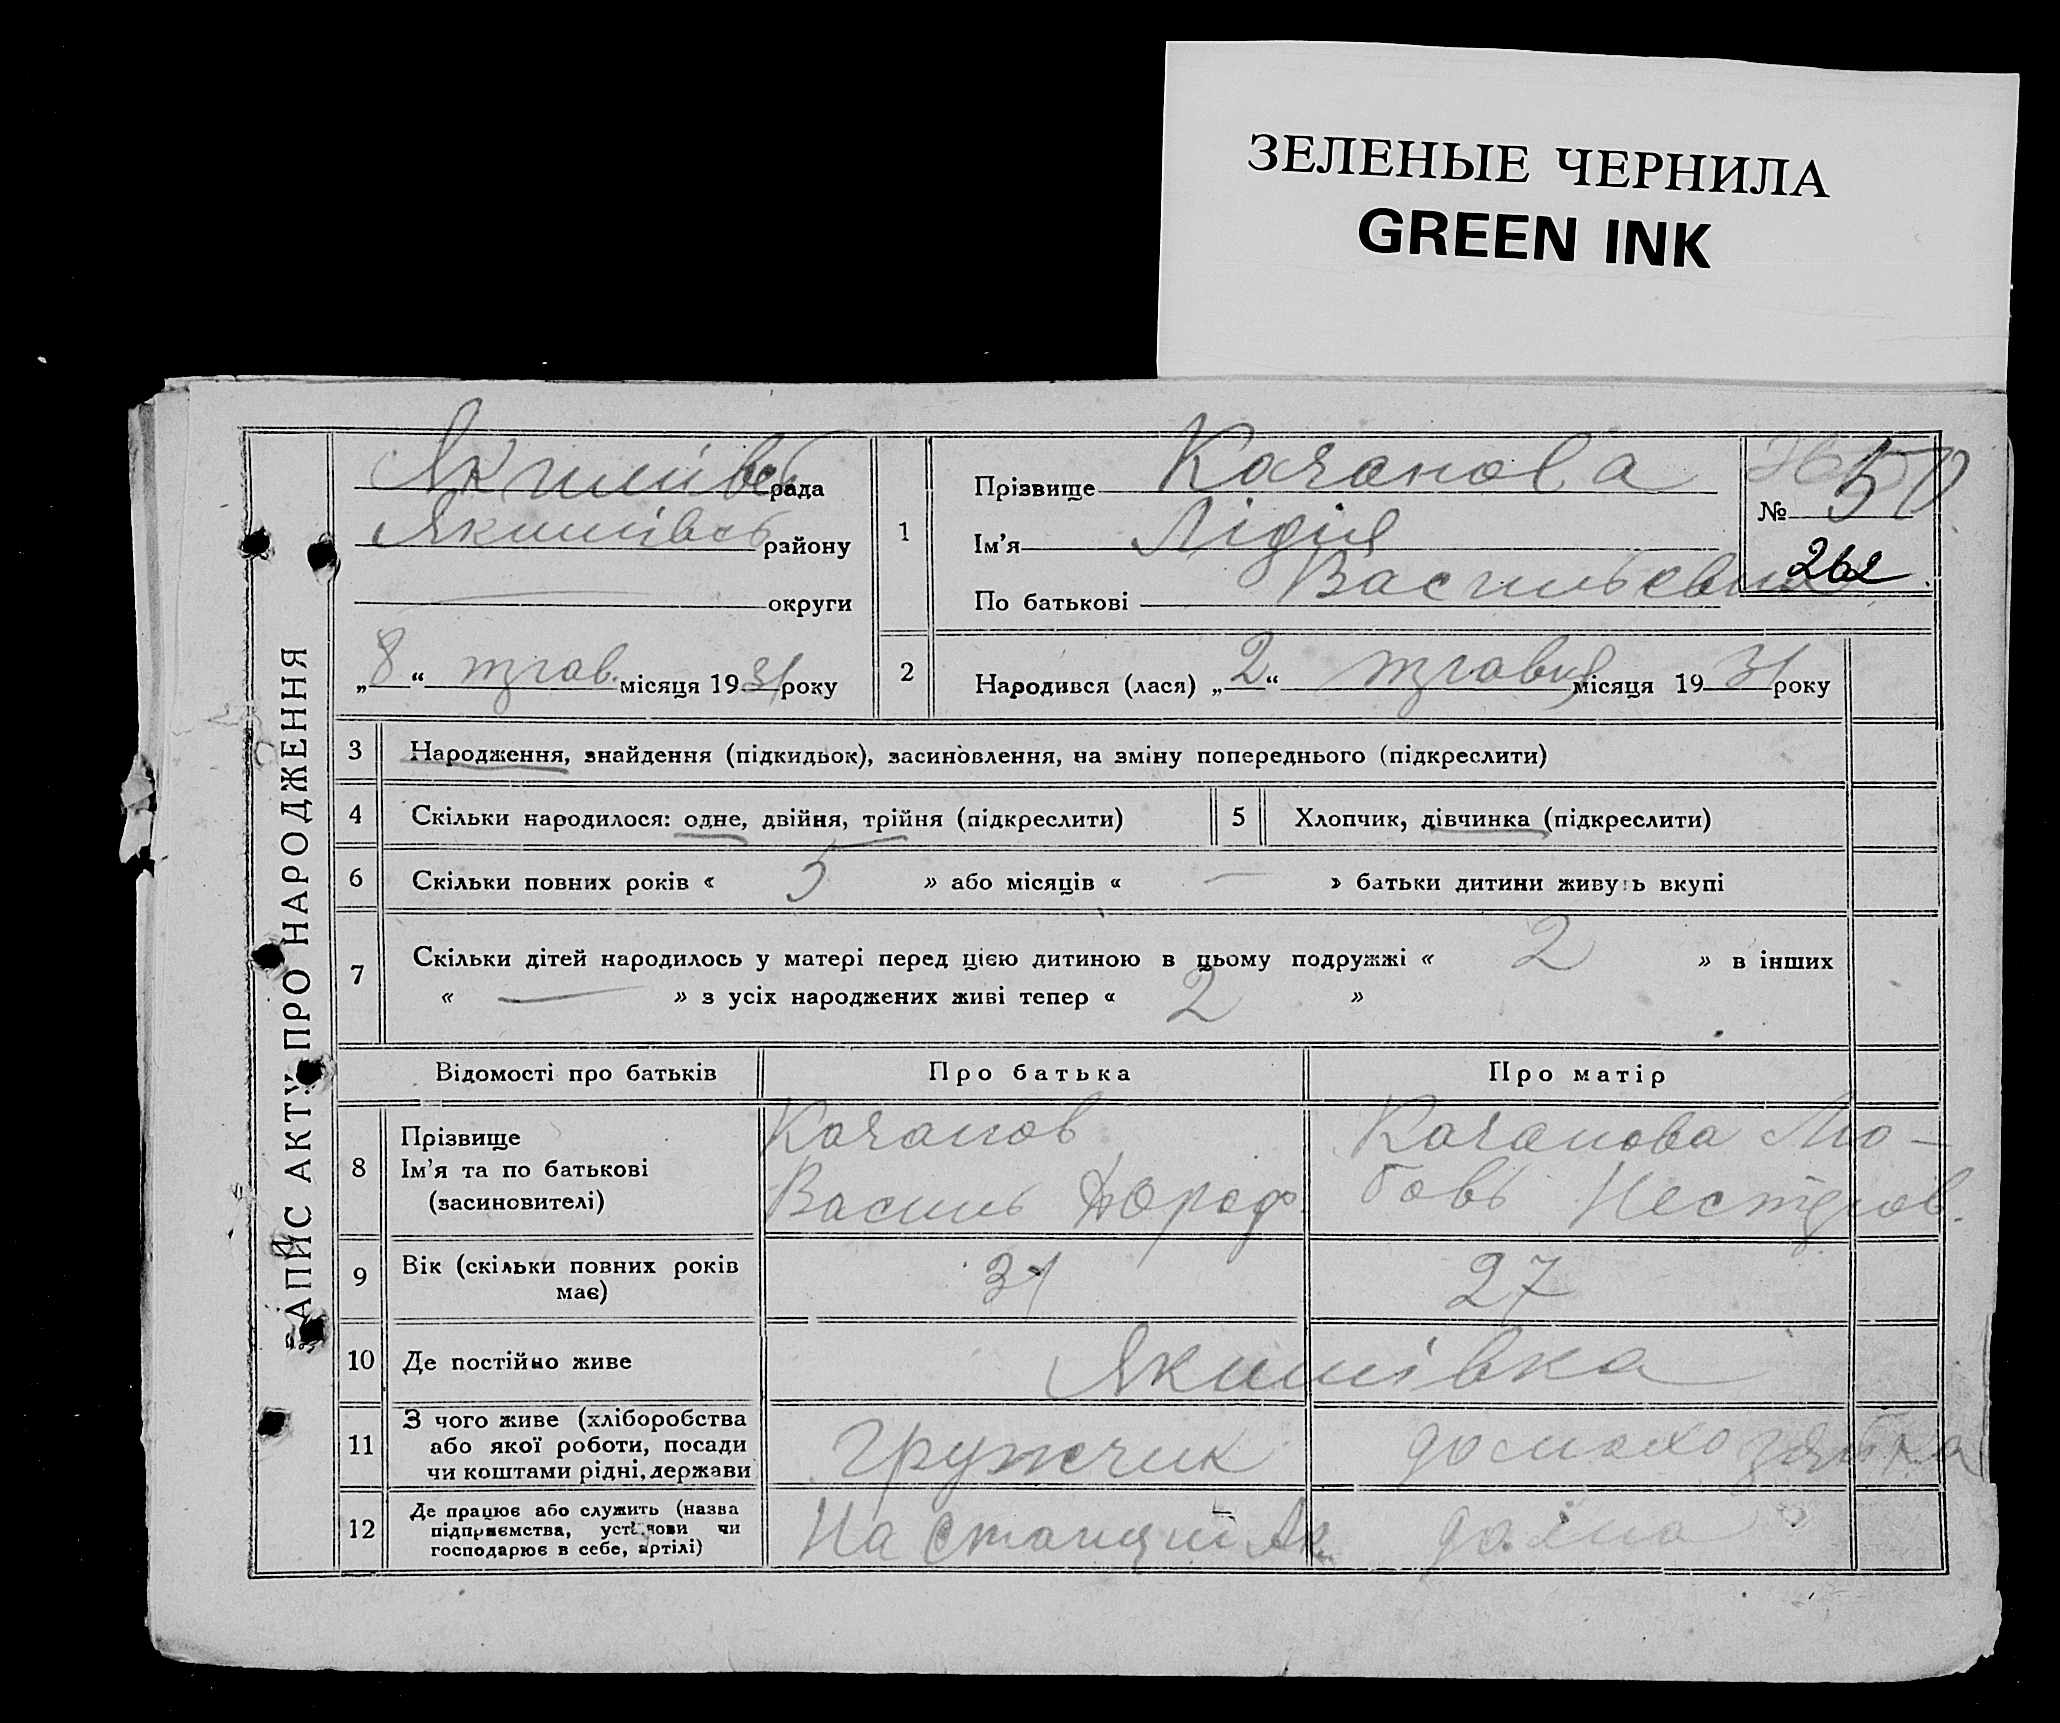 ЗЕЛЕНЫЕ ЧЕРНИЛА
GREEN INK
ЗАПИС АКТУ ПРО НАРОДЖЕННЯ
Якимівсь рада
Якимівсь району
округи
„8“ трав. місяця 1931 року
1
Прізвище Качанова
Ім'я Лідія
По батькові Васильевна
№ 50
262
2
Народився (лася) „2“ травня місяця 1931 року
3 Народження, знайдення (підкидьок), засиновлення, на зміну попереднього (підкреслити)
4 Скільки народилося: одне, двійня, трійня (підкреслити) 5 Хлопчик, дівчинка (підкреслити)
6 Скільки повних років « 5 » або місяців « — » батьки дитини живуть вкупі
7 Скільки дітей народилось у матері перед цією дитиною в цьому подружжі « 2 » в інших
« — » з усіх народжених живі тепер « 2 »
Відомості про батьків Про батька Про матір
8 Прізвище
Ім'я та по батькові
(засиновителі)
Качанов
Василь
Качанова Лю-
бовь Нестеров.
9 Вік (скільки повних років
має)
31 27
10 Де постійно живе Якимівка
11 З чого живе (хліборобства
або якої роботи, посади
чи коштами рідні, держави
грузчик домохозяйка
12 Де працює або служить (назва
підприємства, установи чи
господарює в себе, артілі)
На станции Як. дома